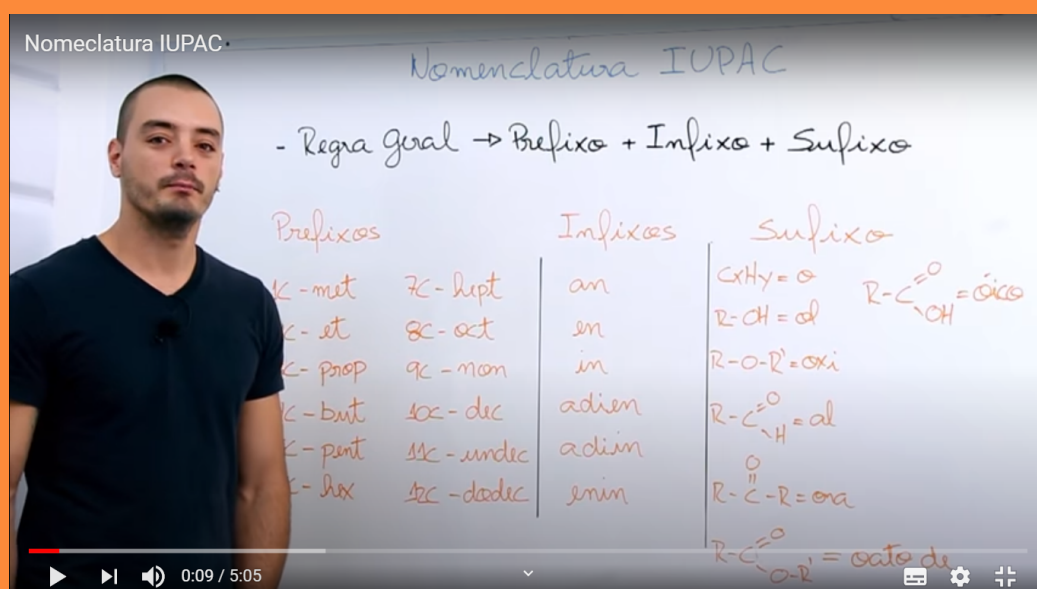 Nomeclatura IUPAC
Nomenclatura IUPAC
- Regra geral → Prefixo + Infixo + Sufixo
Prefixos
C - met
C - et
C - prop
C - but
C - pent
C - hex
7C - hept
8C - oct
9C - non
10C - dec
11C - undec
12C - dodec
Infixos
an
en
in
adien
adiin
enin
Sufixo
CxHy = o
R-OH = ol
R-O-R' = oxi
R-C=O\H = al
R-C(=O)-R = ona
R-C=O\O-R' = oato de
R-C=O\OH = óico
0:09 / 5:05